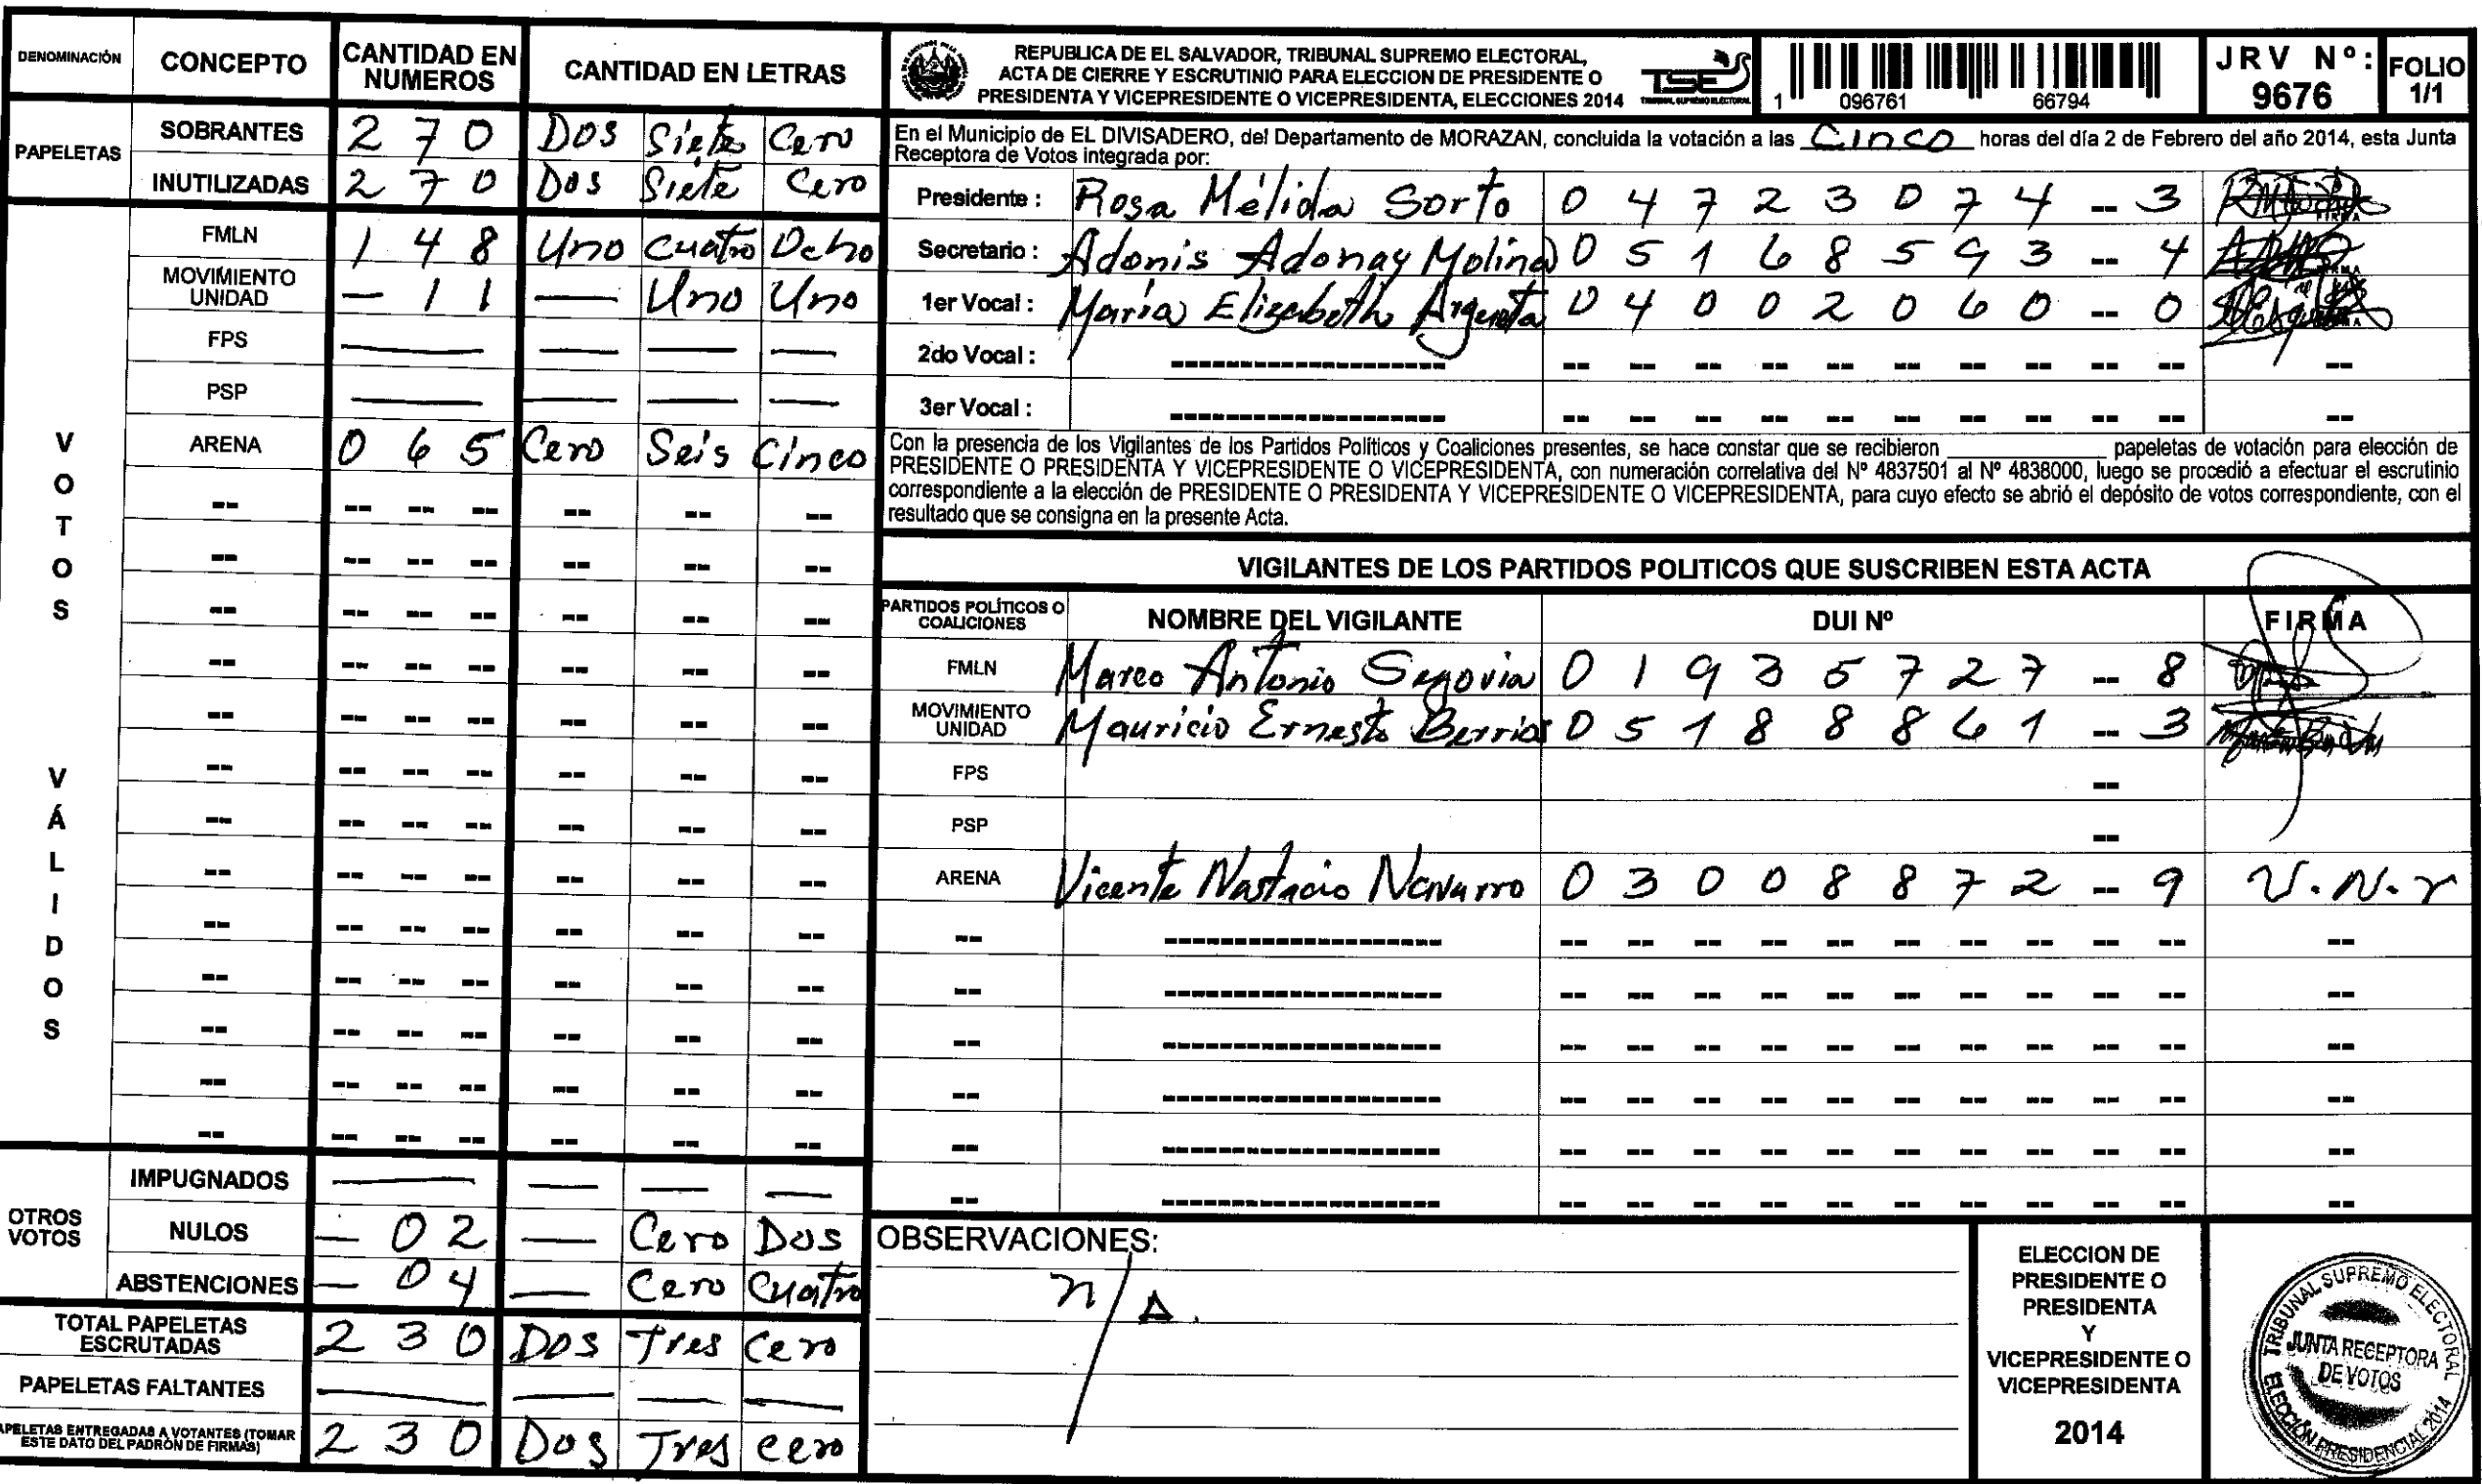 DENOMINACIÓN CONCEPTO CANTIDAD EN NUMEROS CANTIDAD EN LETRAS
PAPELETAS
SOBRANTES 2 7 0 Dos Siete Cero
INUTILIZADAS 2 7 0 Dos Siete Cero
VOTOS VÁLIDOS
FMLN 1 4 8 Uno Cuatro Ocho
MOVIMIENTO UNIDAD — 1 1 — Uno Uno
FPS — — — —
PSP — — — —
ARENA 0 6 5 Cero Seis Cinco
-- -- -- -- -- -- --
-- -- -- -- -- -- --
-- -- -- -- -- -- --
-- -- -- -- -- -- --
-- -- -- -- -- -- --
-- -- -- -- -- -- --
-- -- -- -- -- -- --
-- -- -- -- -- -- --
-- -- -- -- -- -- --
-- -- -- -- -- -- --
-- -- -- -- -- -- --
-- -- -- -- -- -- --
-- -- -- -- -- -- --
OTROS VOTOS
IMPUGNADOS — — — —
NULOS — 0 2 — Cero Dos
ABSTENCIONES — 0 4 — Cero Cuatro
TOTAL PAPELETAS ESCRUTADAS 2 3 0 Dos Tres Cero
PAPELETAS FALTANTES — — — —
PAPELETAS ENTREGADAS A VOTANTES (TOMAR ESTE DATO DEL PADRÓN DE FIRMAS) 2 3 0 Dos Tres cero
REPUBLICA DE EL SALVADOR, TRIBUNAL SUPREMO ELECTORAL,
ACTA DE CIERRE Y ESCRUTINIO PARA ELECCION DE PRESIDENTE O
PRESIDENTA Y VICEPRESIDENTE O VICEPRESIDENTA, ELECCIONES 2014
TSE
TRIBUNAL SUPREMO ELECTORAL
1 096761 66794
JRV Nº: 9676
FOLIO 1/1
En el Municipio de EL DIVISADERO, del Departamento de MORAZAN, concluida la votación a las Cinco horas del día 2 de Febrero del año 2014, esta Junta
Receptora de Votos integrada por:
Presidente : Rosa Mélida Sorto 0 4 7 2 3 0 7 4 -- 3
Secretario : Adonis Adonay Molina 0 5 1 6 8 5 9 3 -- 4
1er Vocal : María Elizabeth Argueta 0 4 0 0 2 0 6 0 -- 0
2do Vocal : -- -- -- -- -- -- -- -- -- -- --
3er Vocal : -- -- -- -- -- -- -- -- -- -- --
Con la presencia de los Vigilantes de los Partidos Políticos y Coaliciones presentes, se hace constar que se recibieron ________ papeletas de votación para elección de
PRESIDENTE O PRESIDENTA Y VICEPRESIDENTE O VICEPRESIDENTA, con numeración correlativa del Nº 4837501 al Nº 4838000, luego se procedió a efectuar el escrutinio
correspondiente a la elección de PRESIDENTE O PRESIDENTA Y VICEPRESIDENTE O VICEPRESIDENTA, para cuyo efecto se abrió el depósito de votos correspondiente, con el
resultado que se consigna en la presente Acta.
VIGILANTES DE LOS PARTIDOS POLITICOS QUE SUSCRIBEN ESTA ACTA
PARTIDOS POLÍTICOS O COALICIONES NOMBRE DEL VIGILANTE DUI Nº FIRMA
FMLN Marco Antonio Segovia 0 1 9 3 5 7 2 7 -- 8
MOVIMIENTO UNIDAD Mauricio Ernesto Berrios 0 5 1 8 8 8 6 1 -- 3
FPS --
PSP --
ARENA Vicente Nastacio Navarro 0 3 0 0 8 8 7 2 -- 9 V.N.r
-- -- -- -- -- -- -- -- -- -- -- --
-- -- -- -- -- -- -- -- -- -- -- --
-- -- -- -- -- -- -- -- -- -- -- --
-- -- -- -- -- -- -- -- -- -- -- --
-- -- -- -- -- -- -- -- -- -- -- --
-- -- -- -- -- -- -- -- -- -- -- --
OBSERVACIONES:
n/A.
ELECCION DE
PRESIDENTE O
PRESIDENTA
Y
VICEPRESIDENTE O
VICEPRESIDENTA
2014
TRIBUNAL SUPREMO ELECTORAL
JUNTA RECEPTORA
DE VOTOS
ELECCIÓN PRESIDENCIAL 2014